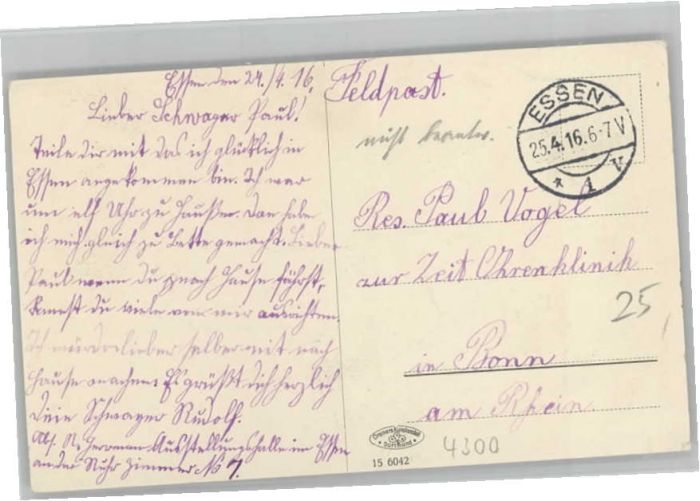 Essen den 24./4.16.
Lieber Schwager Paul!
Teile dir mit das ich glücklich in
Essen angekommen bin. Ich war
um elf Uhr zu Hausse. Dan habe
ich mich gleich zu Bette gemacht. Lieber
Paul wenn du nach Hause fährst,
kannst du viele von mir ausrichten.
Ich würde lieber selber mit nach
Hause machen. Es grüßt dich herzlich
dein Schwager Rudolf.
Abs. R. Herrman Ausstellungshalle in Essen
an der Ruhr Zimmer No 7.
Feldpost.
nicht
ESSEN
25.4.16.6-7V
* 1 v
Res. Paul Vogel
zur Zeit Ohrenklinik
25
in Bonn
am Rhein
4300
15 6042